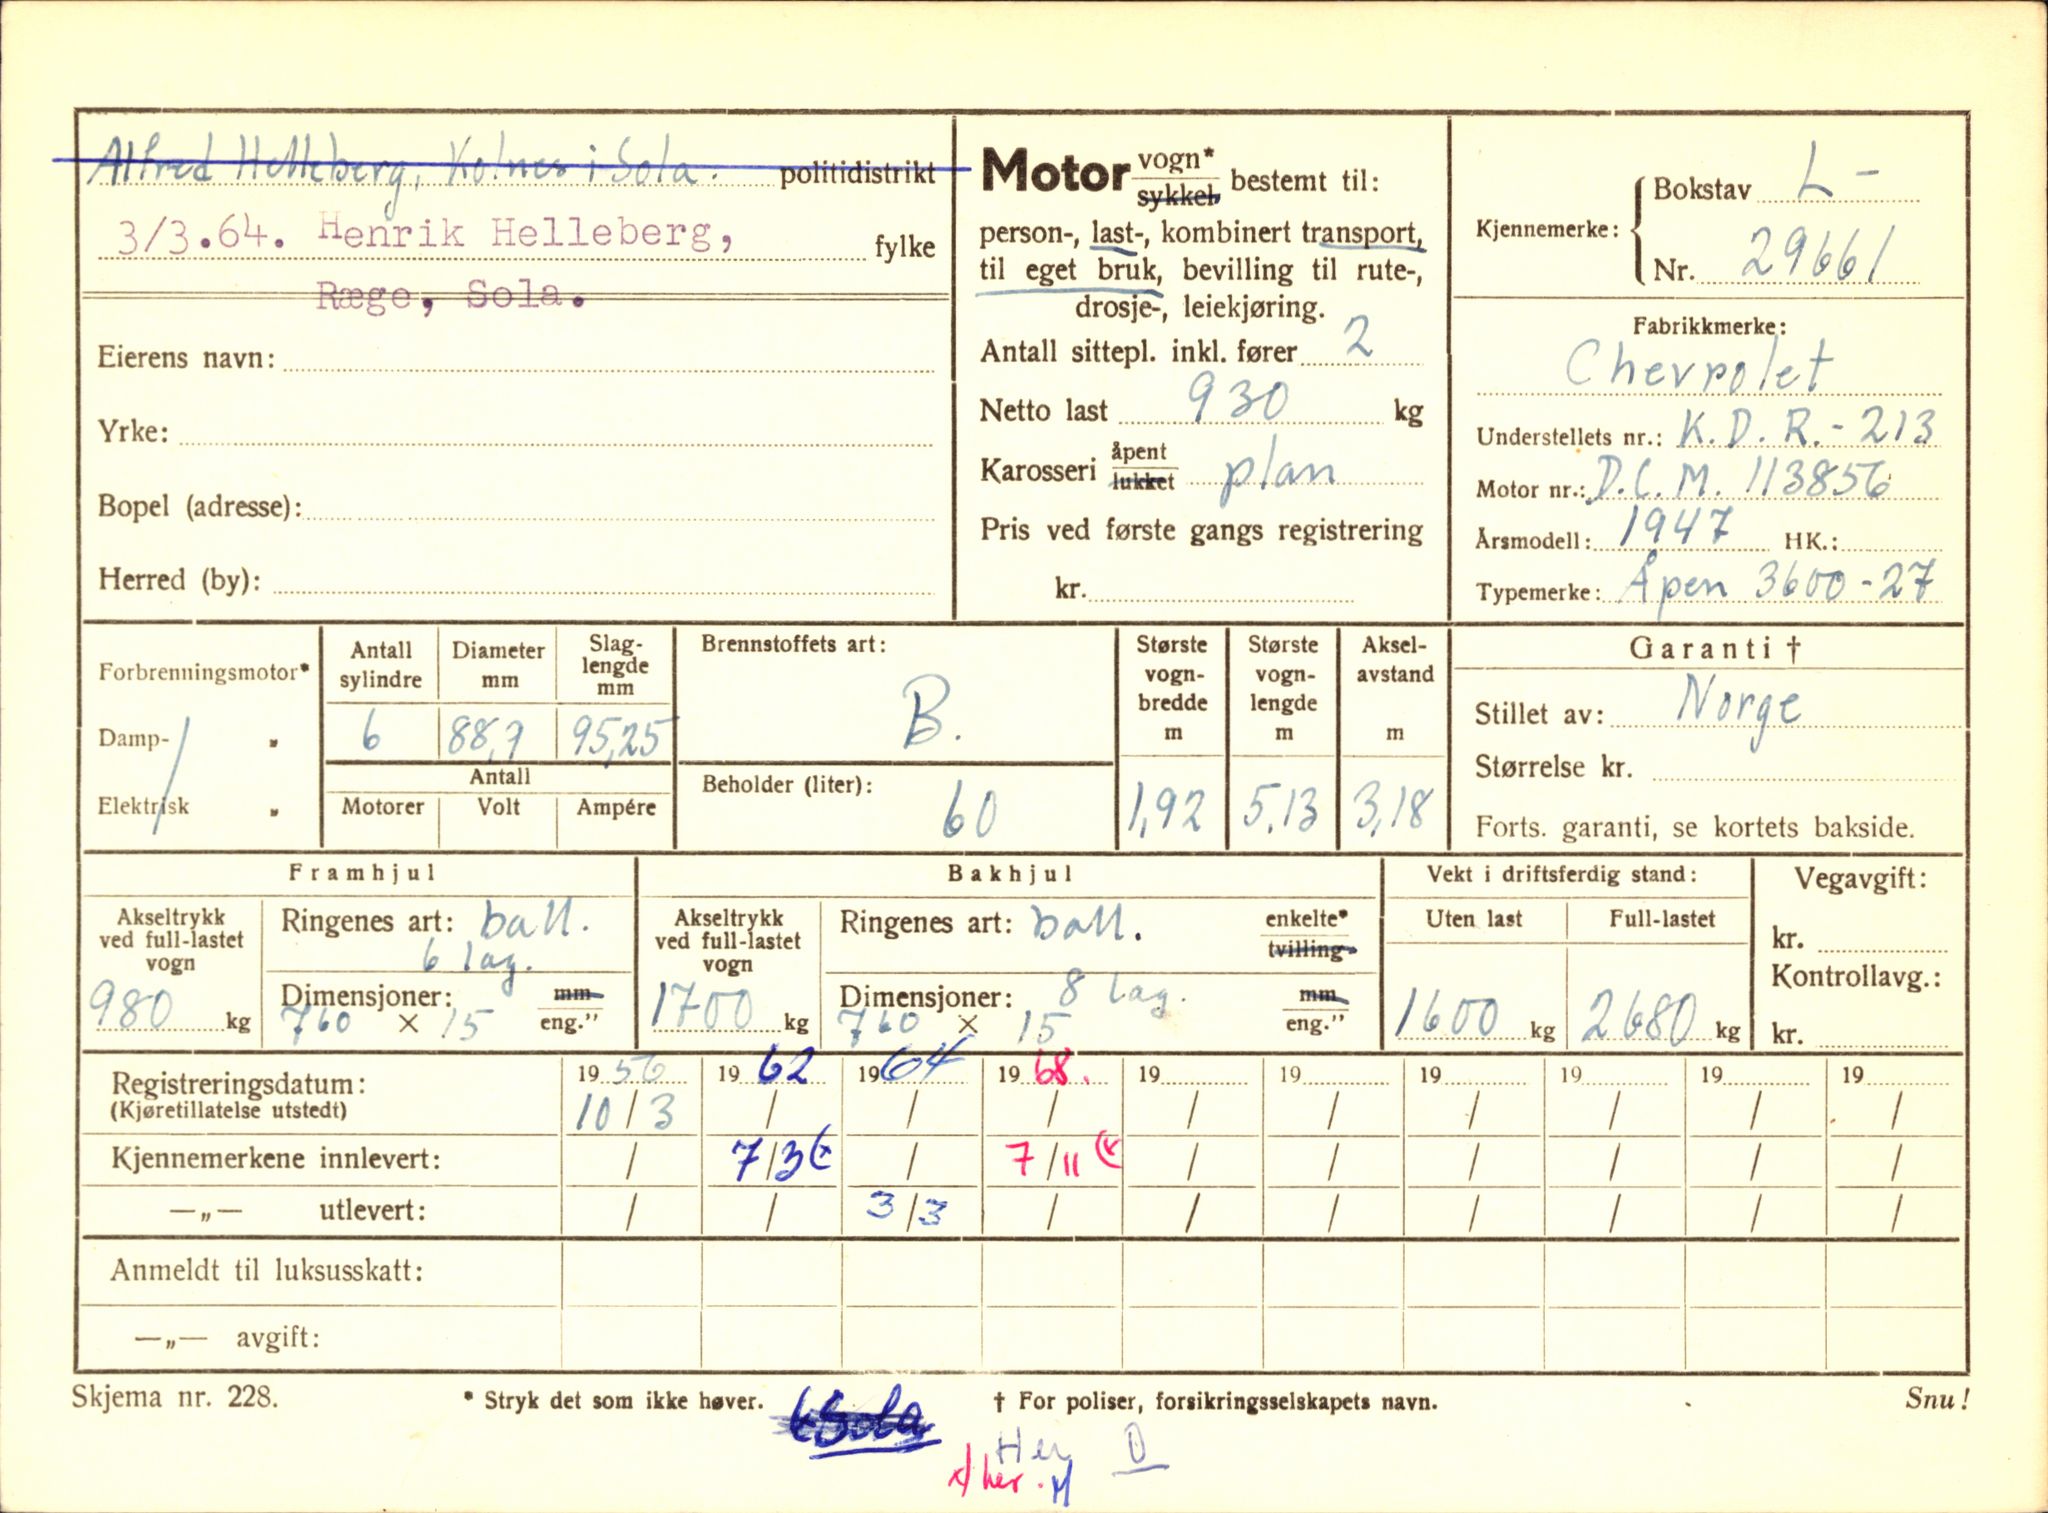 Alfred Helleberg, Kolnes i Sola. politidistrikt
3/3.64. Henrik Helleberg, fylke
Ræge, Sola.
Eierens navn:
Yrke:
Bopel (adresse):
Herred (by):
Motor vogn* sykkel bestemt til:
person-, last-, kombinert transport,
til eget bruk, bevilling til rute-,
drosje-, leiekjøring.
Antall sittepl. inkl. fører 2
Netto last 930 kg
Karosseri åpent lukket plan
Pris ved første gangs registrering
kr.
Kjennemerke: Bokstav L-
Nr. 29661
Fabrikkmerke:
Chevrolet
Understellets nr.: K.D.R.-213
Motor nr.: D.C.M. 113856
Årsmodell: 1947 HK.:
Typemerke: Åpen 3600-27
Forbrenningsmotor*
Damp- „
Elektrisk „
Antall sylindre 6
Diameter mm 88,9
Slaglengde mm 95,25
Antall
Motorer Volt Ampére
Brennstoffets art:
B.
Beholder (liter):
60
Største vognbredde m 1,92
Største vognlengde m 5,13
Akselavstand m 3,18
Garanti †
Stillet av: Norge
Størrelse kr.
Forts. garanti, se kortets bakside.
Framhjul
Akseltrykk ved full-lastet vogn
980 kg
Ringenes art: ball.
6 lag.
Dimensjoner: mm
760 × 15 eng."
Bakhjul
Akseltrykk ved full-lastet vogn
1700 kg
Ringenes art: ball. enkelte* tvilling
Dimensjoner: 8 lag. mm
760 × 15 eng."
Vekt i driftsferdig stand:
Uten last Full-lastet
1600 kg 2680 kg
Vegavgift:
kr.
Kontrollavg.:
kr.
Registreringsdatum: 19 56 19 62 19 64 19 68. 19 19 19 19 19 19
(Kjøretillatelse utstedt) 10/3 / / / / / / / / /
Kjennemerkene innlevert: / 7/3 (x / 7/11 (x / / / / / /
—„— utlevert: / / 3/3 / / / / / / /
Anmeldt til luksusskatt:
—„— avgift:
Skjema nr. 228. * Stryk det som ikke høver. Sola † For poliser, forsikringsselskapets navn. Snu!
Her 0
x/ her. x/